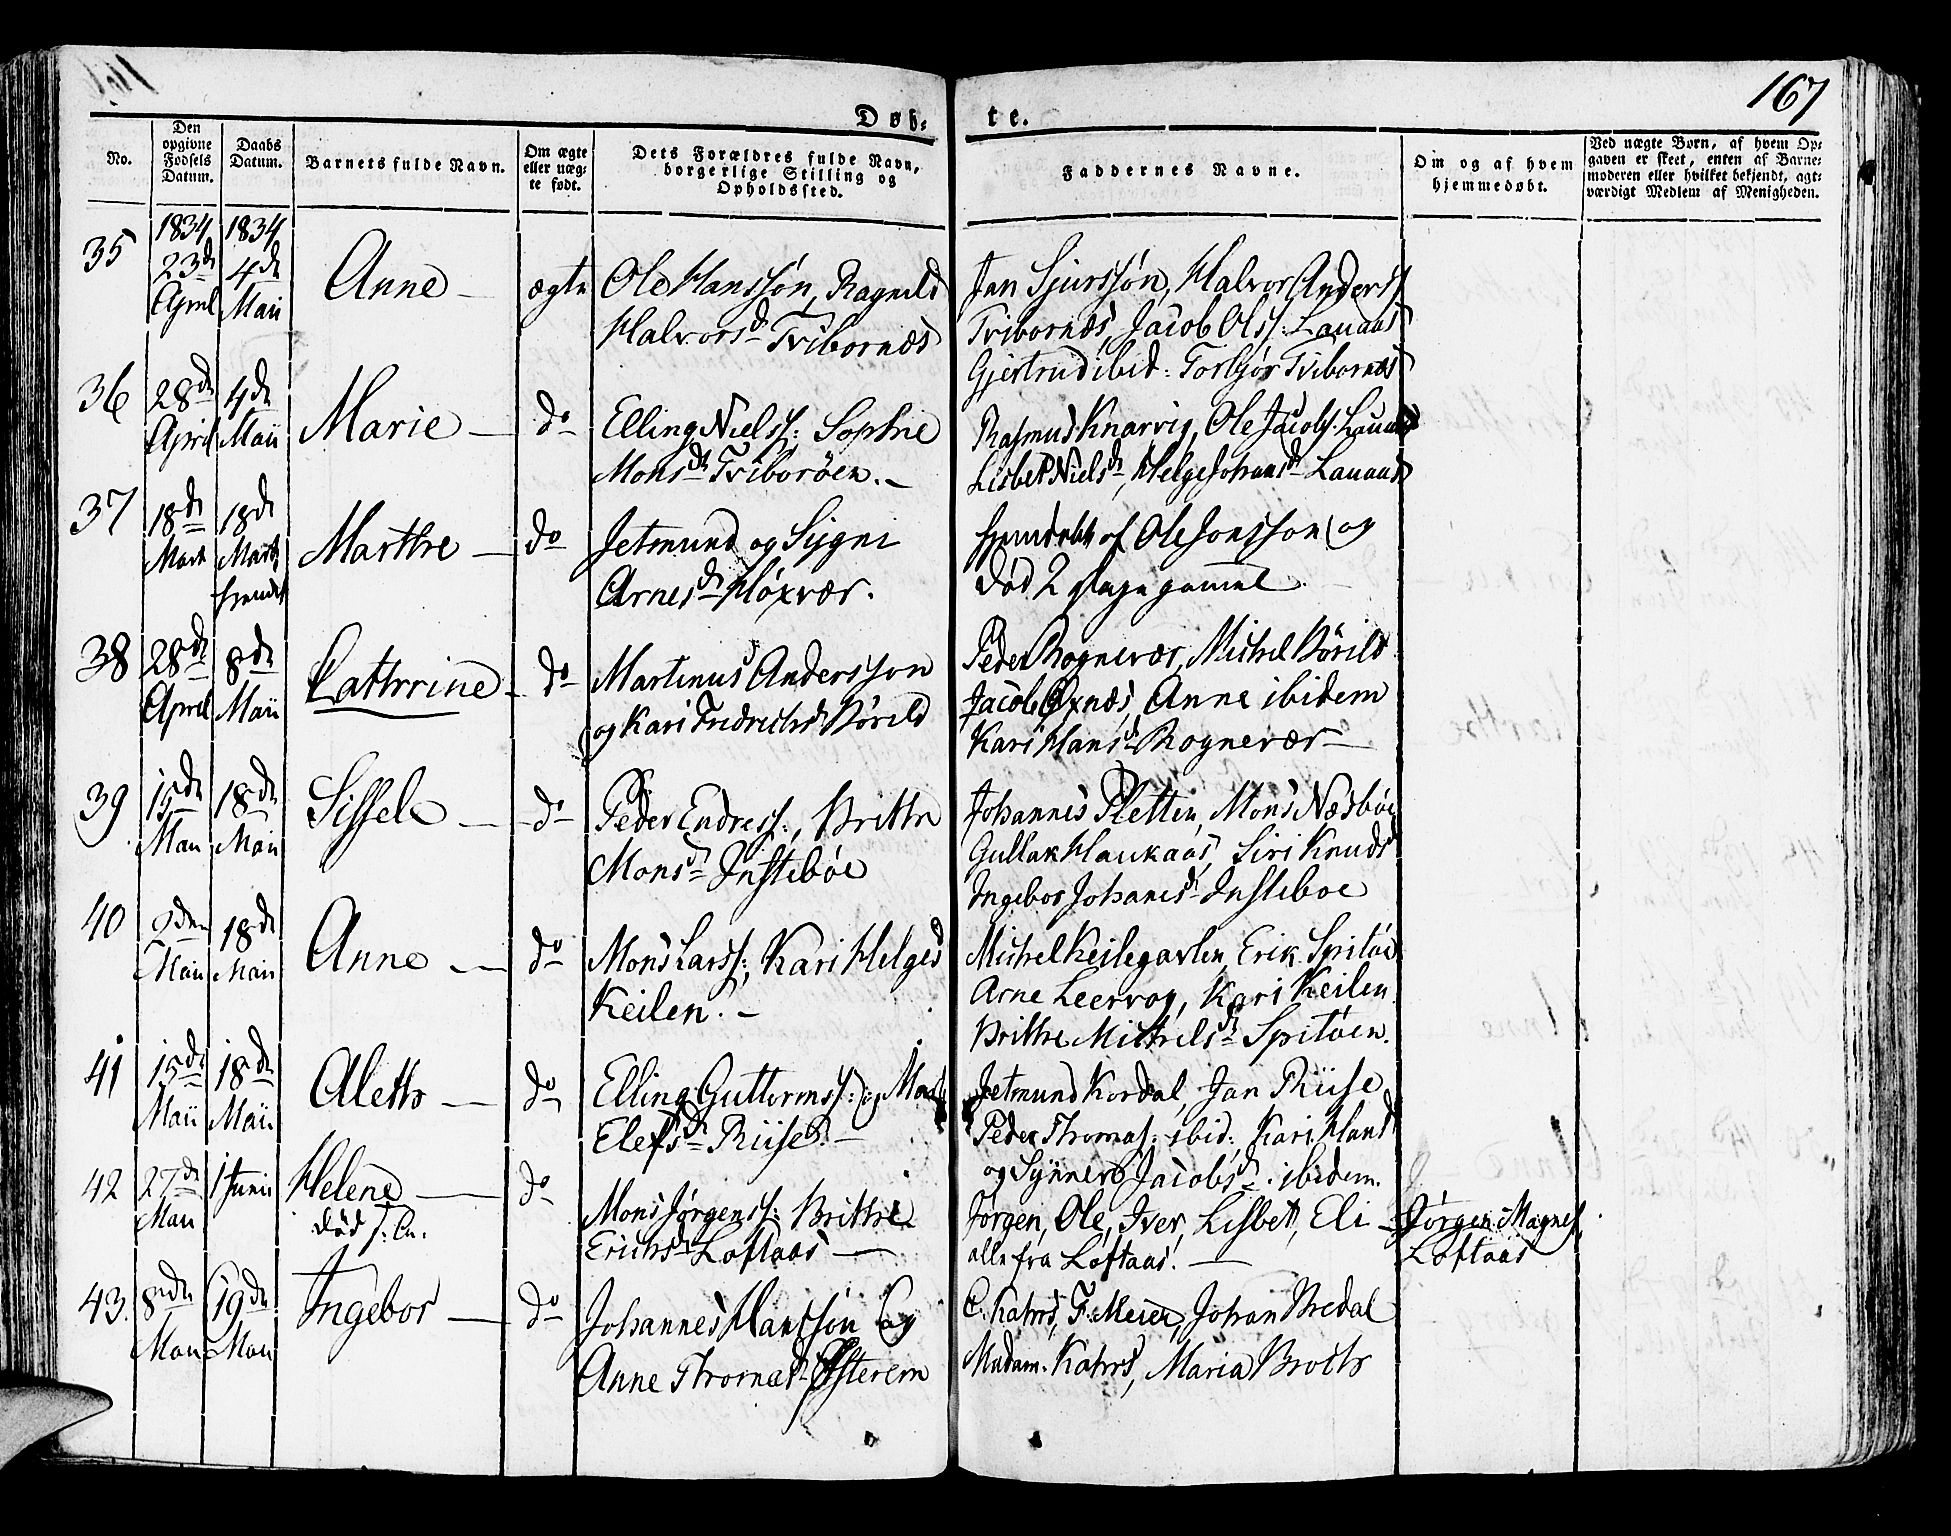 167
Døb-
te.
No.
Den opgivne Fødsels Datum.
Daabs Datum.
Barnets fulde Navn.
Om ægte eller uægte født.
Dets Forældres fulde Navn, borgerlige Stilling og Opholdssted.
Faddernes Navne.
Om og af hvem hjemmedøbt.
Ved uægte Børn, af hvem Opgaven er skeet, enten af Barnemoderen eller hvilket bekjendt, agtværdigt Medlem af Menigheden.
35 1834 23de April 1834 4de Maii Anne ægte Ole Hanssøn, Ragnild
Halvorsd Tvibornæs
Jan Sjurssøn, Halvor Anders
Tvibornæs, Jacob Ols: Lauaas
Gjertrud ibid: Torbjør Tvibornæs
36 28de April 4de Maii Marie do Elling Niels: Sophie
Monsdr Tviborøen.
Rasmus Knarvig, Ole Jacobs. Lauaas
Lisbet Nielsdr, Helge Johansdr Lauaas
37 18de Mart 18de Marts hjemdøbt Marthe do Jetmund og Sygni
Arnesdr Høxvær.
hjemdøbt af Ole Jonsson og
død 2 Dage gammel
38 28de April 8de Maii Cathrine do Martinus Andersson
og Kari Fridrichsd Børild
Peder Rognevær, Michel Børild
Jacob Øxnæs, Anne ibidem
Kari Hansd Rognevær
39 15de Maii 18de Maii Sissele do Peder Endress:, Britthe
Monsdr Instebøe
Johannes Sletten, Mons Næsbøe
Gullak Haukaas, Siri Knuds
Ingebor Johanesd Insteboe
40 9den Maii 18de Maii Anne do Mons Larss:, Kari Helgesd
Keilen.
Michel Keilegavlen, Erik Spritøe
Arne Leervog, Kari Keilen
Britthe Michelsdr Spritøen.
41 15de Maii 18de Maii Alethe do Elling Guttorms: og
Elefsdr Riise.
Jetmund Kordal, Jan Riise
Peder Thomas: ibid: Kari Hansd
og Synneve Jacobsdr ibidem.
42 27de Maii 1 Junii Helene do Mons Jørgenss: Britthe
død
Erichsdr Løftaas
Jørgen, Ole, Iver, Lisbet, Eli
alle fra Løftaas.
Jørgen Magnes
Løftaas
43. 8de Maii 19de Maii Ingebor do Johannes Hanssøn og
Anne Thomæsd Østerem
C. Kahrs, F. Meier, Johan Bredal
Madam. Kahrs, Maria Broch